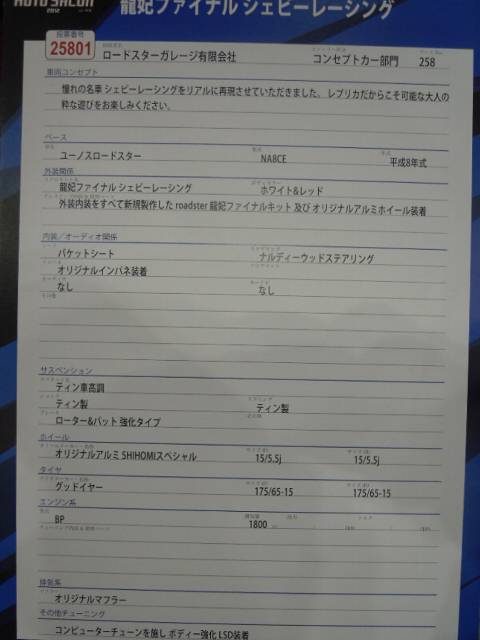 AUTO SALON
2012
龍妃ファイナル シェビーレーシング
投票番号
25801
ロードスターガレージ有限会社
コンセプトカー部門
258
車両コンセプト
憧れの名車 シェビーレーシングをリアルに再現させていただきました、 レプリカだからこそ可能な大人の
粋な遊びをお楽しみください。
ベース
車名
ユーノスロードスター
型式
NA8CE
年式
平成8年式
外装関係
龍妃ファイナル シェビーレーシング
ホワイト&レッド
外装内装をすべて新規製作した roadster 龍妃ファイナルキット 及び オリジナルアルミホイール装着
内装/オーディオ関係
シート
バケットシート
ステアリング
ナルディーウッドステアリング
オリジナルインパネ装着
なし
なし
その他
サスペンション
ティン車高調
ティン製
ティン製
ブレーキ
ローター&パット 強化タイプ
ホイール
オリジナルアルミ SHIHOMIスペシャル
15/5.5j
15/5.5j
タイヤ
グッドイヤー
175/65-15
175/65-15
エンジン系
型式
BP
排気量
1800
cc
rpm
rpm
排気系
マフラー
オリジナルマフラー
その他チューニング
コンピューターチューンを施し ボディー強化 LSD装着